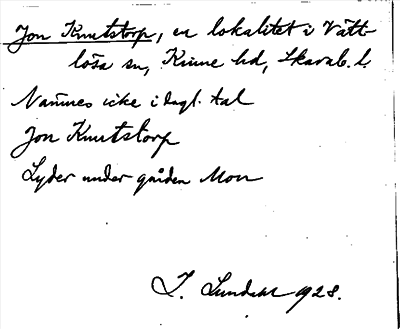 Jon Knutstorp, en lokalitet i Vätt-
lösa sn, Kinne hd, Skarab. l.
Namnes icke i dagl. tal
Jon Knutstorp
Lyder under gården Mon
I. Lundahl 1928.